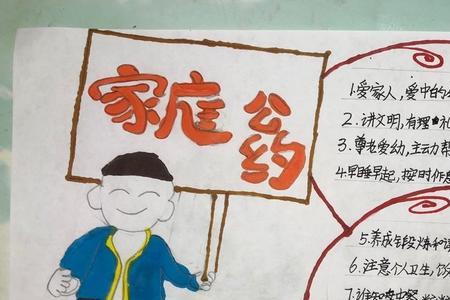 家庭公约
1.爱家人,爱中
2.讲文明,有理 礼
3.尊老爱幼,主动
4.早睡早起,按时作息
5.养成锻炼和
6.注意个人卫生,饮
7.